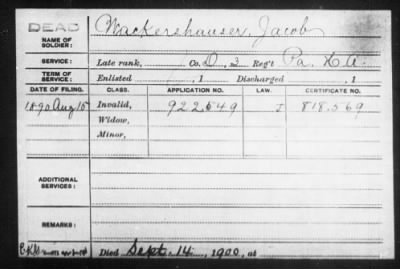 DEAD
NAME OF SOLDIER: Wackershauser, Jacob
SERVICE: Late rank, Co. D, 3 Reg't Pa. H.A.
TERM OF SERVICE: Enlisted , 1 Discharged , 1
DATE OF FILING. CLASS. APPLICATION NO. LAW. CERTIFICATE NO.
1890 Aug 15 Invalid, 922.549 J 818.569
Widow,
Minor,
ADDITIONAL SERVICES:
REMARKS:
Died Sept. 14, 1900, at